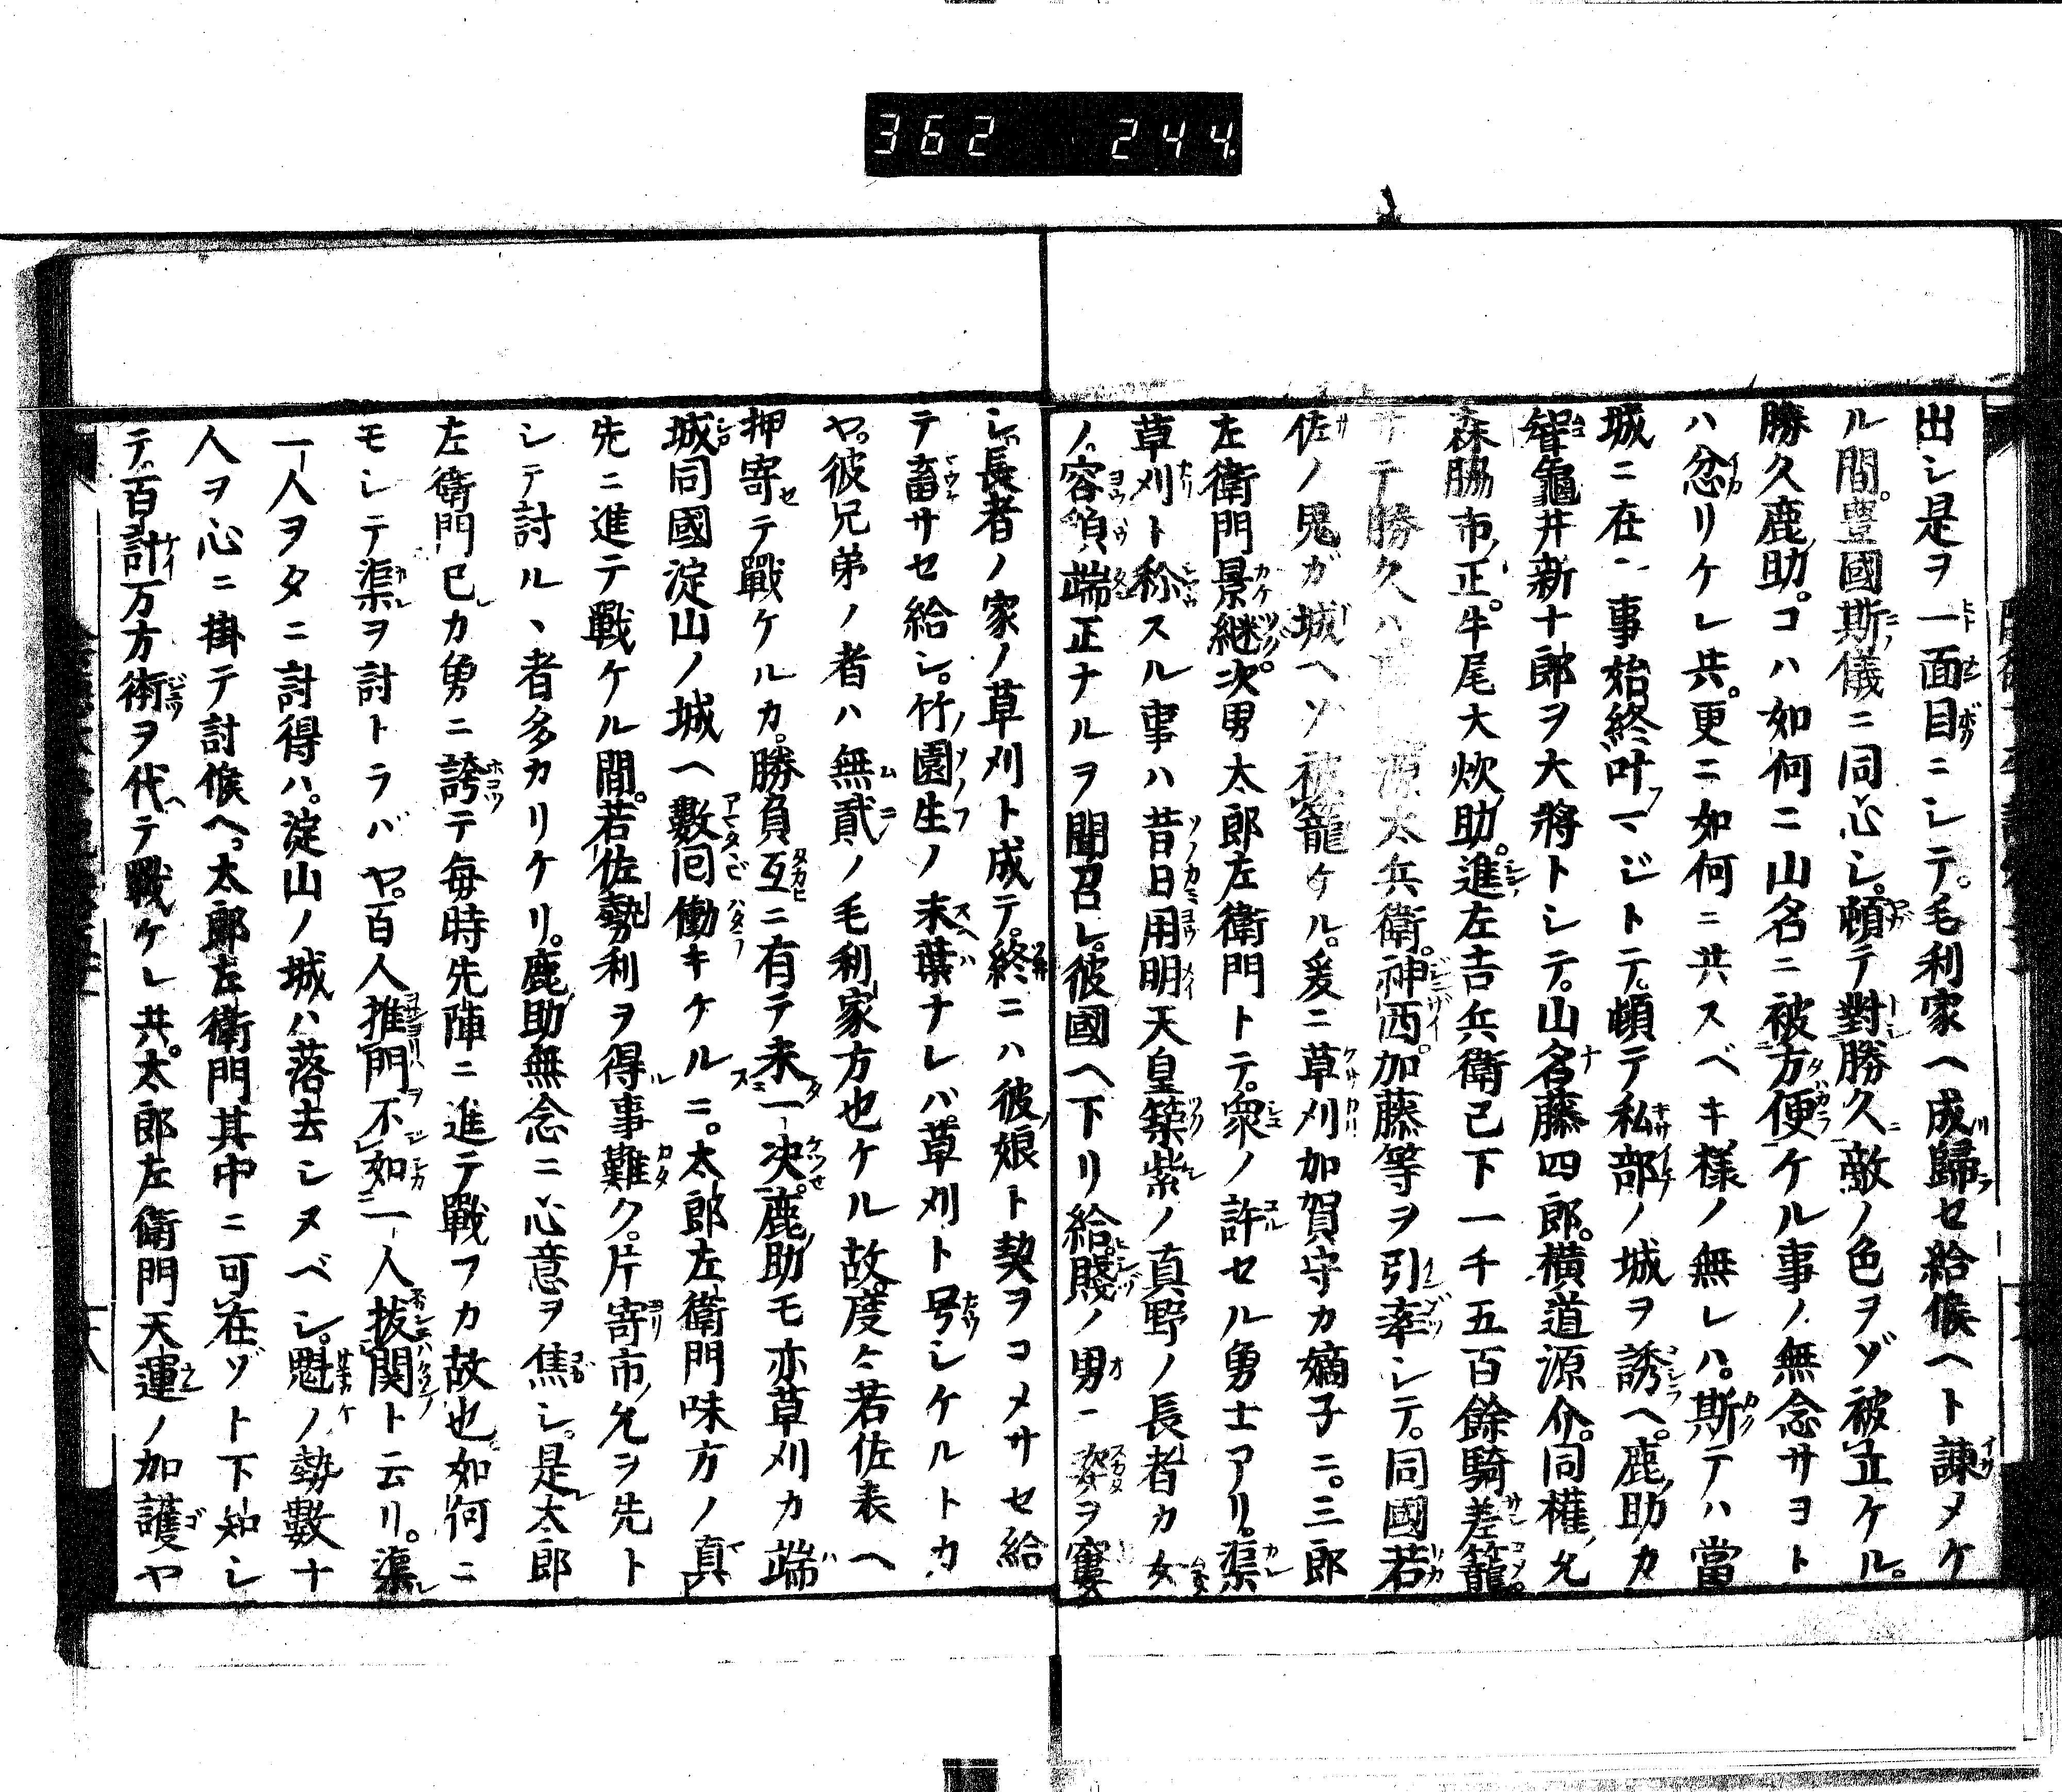 362 244
出シ是ヲ一面目ニシテ。毛利家ヘ成歸セ給候ヘト諫メケ
ル間。豊國斯儀ニ同心シ。頓テ對勝久敵ノ色ヲゾ被立ケル。
勝久鹿助。コハ如何ニ山名ニ被方便ケル事ノ無念サヨト
ハ忿リケレ共。更ニ如何ニ共スベキ様ノ無レハ。斯テハ當
城ニ在事始終叶マジトテ。頓テ私部ノ城ヲ誘ヘ。鹿助カ
聟龜井新十郎ヲ大將トシテ。山名藤四郎。横道源介。同權允
森脇市正。牛尾大炊助。進左吉兵衛已下一千五百餘騎差籠。
サテ勝久ハ源太兵衛。神西。加藤等ヲ引率シテ。同國若
佐ノ鬼ガ城ヘソ被籠ケル。爰ニ草刈加賀守カ嫡子ニ。三郎
左衛門景継。次男太郎左衛門トテ。衆ノ許セル勇士アリ。渠
草刈ト称スル事ハ昔日用明天皇築紫ノ真野ノ長者カ女
ノ容貌端正ナルヲ聞召レ。彼國ヘ下リ給。賤ノ男ノ姿ヲ窶
シ。長者ノ家ノ草刈ト成テ。終ニハ彼娘ト契ヲコメサセ給
テ畜サセ給シ。竹園生ノ末葉ナレバ。草刈ト号シケルトカ
ヤ。彼兄弟ノ者ハ無貳ノ毛利家方也ケル故。度々若佐表ヘ
押寄セテ戰ケルカ。勝負互ニ有テ未一決。鹿助モ亦草刈カ端
城同國淀山ノ城ヘ數囘働キケルニ。太郎左衛門味方ノ真
先ニ進テ戰ケル間。若佐勢利ヲ得事難ク。片寄市允ヲ先ト
シテ討ルヽ者多カリケリ。鹿助無念ニ心意ヲ焦シ。是太郎
左衛門已カ勇ニ誇テ毎時先陣ニ進テ戰フカ故也。如何ニ
モシテ渠ヲ討トラバヤ。百人推門不如一人拔関ト云リ。渠
一人ヲタニ討得ハ。淀山ノ城ハ落去シヌベシ。魁ノ勢數十
人ヲ心ニ掛テ討候ヘ。太郎左衛門其中ニ可在ゾト下知シ
テ。百計万方術ヲ代テ戰ケレ共。太郎左衛門天運ノ加護ヤ